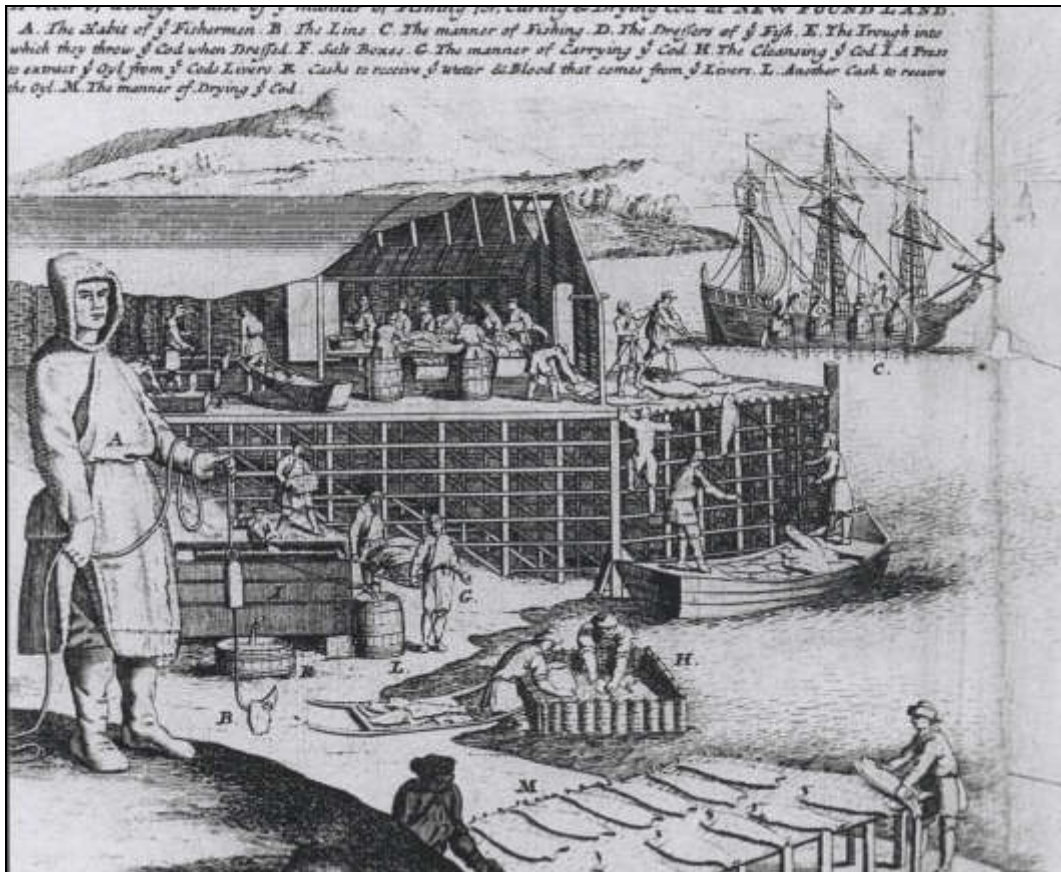 View of a Stage & also of ye manner of Fishing for, Curing & Drying Cod at NEW FOUND LAND.
A. The Habit of ye Fishermen. B. The Line. C. The manner of Fishing. D. The Dressers of ye Fish. E. The Trough into
which they throw ye Cod when Dressed. F. Salt Boxes. G. The manner of Carrying ye Cod. H. The Cleansing ye Cod. I. A Press
to extract ye Oyl from ye Cods Livers. K. Casks to receive ye Water & Blood that comes from ye Livers. L. Another Cask to receive
the Oyl. M. The manner of Drying ye Cod.
C.
A
I
G.
H.
L.
K
B
M